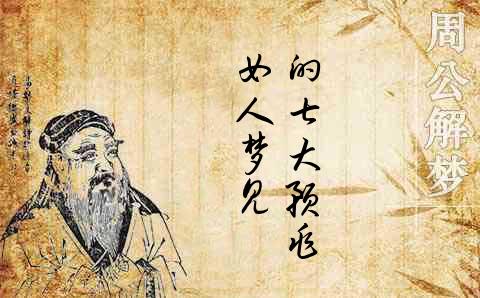 周公解梦
女人梦见
的七大预兆